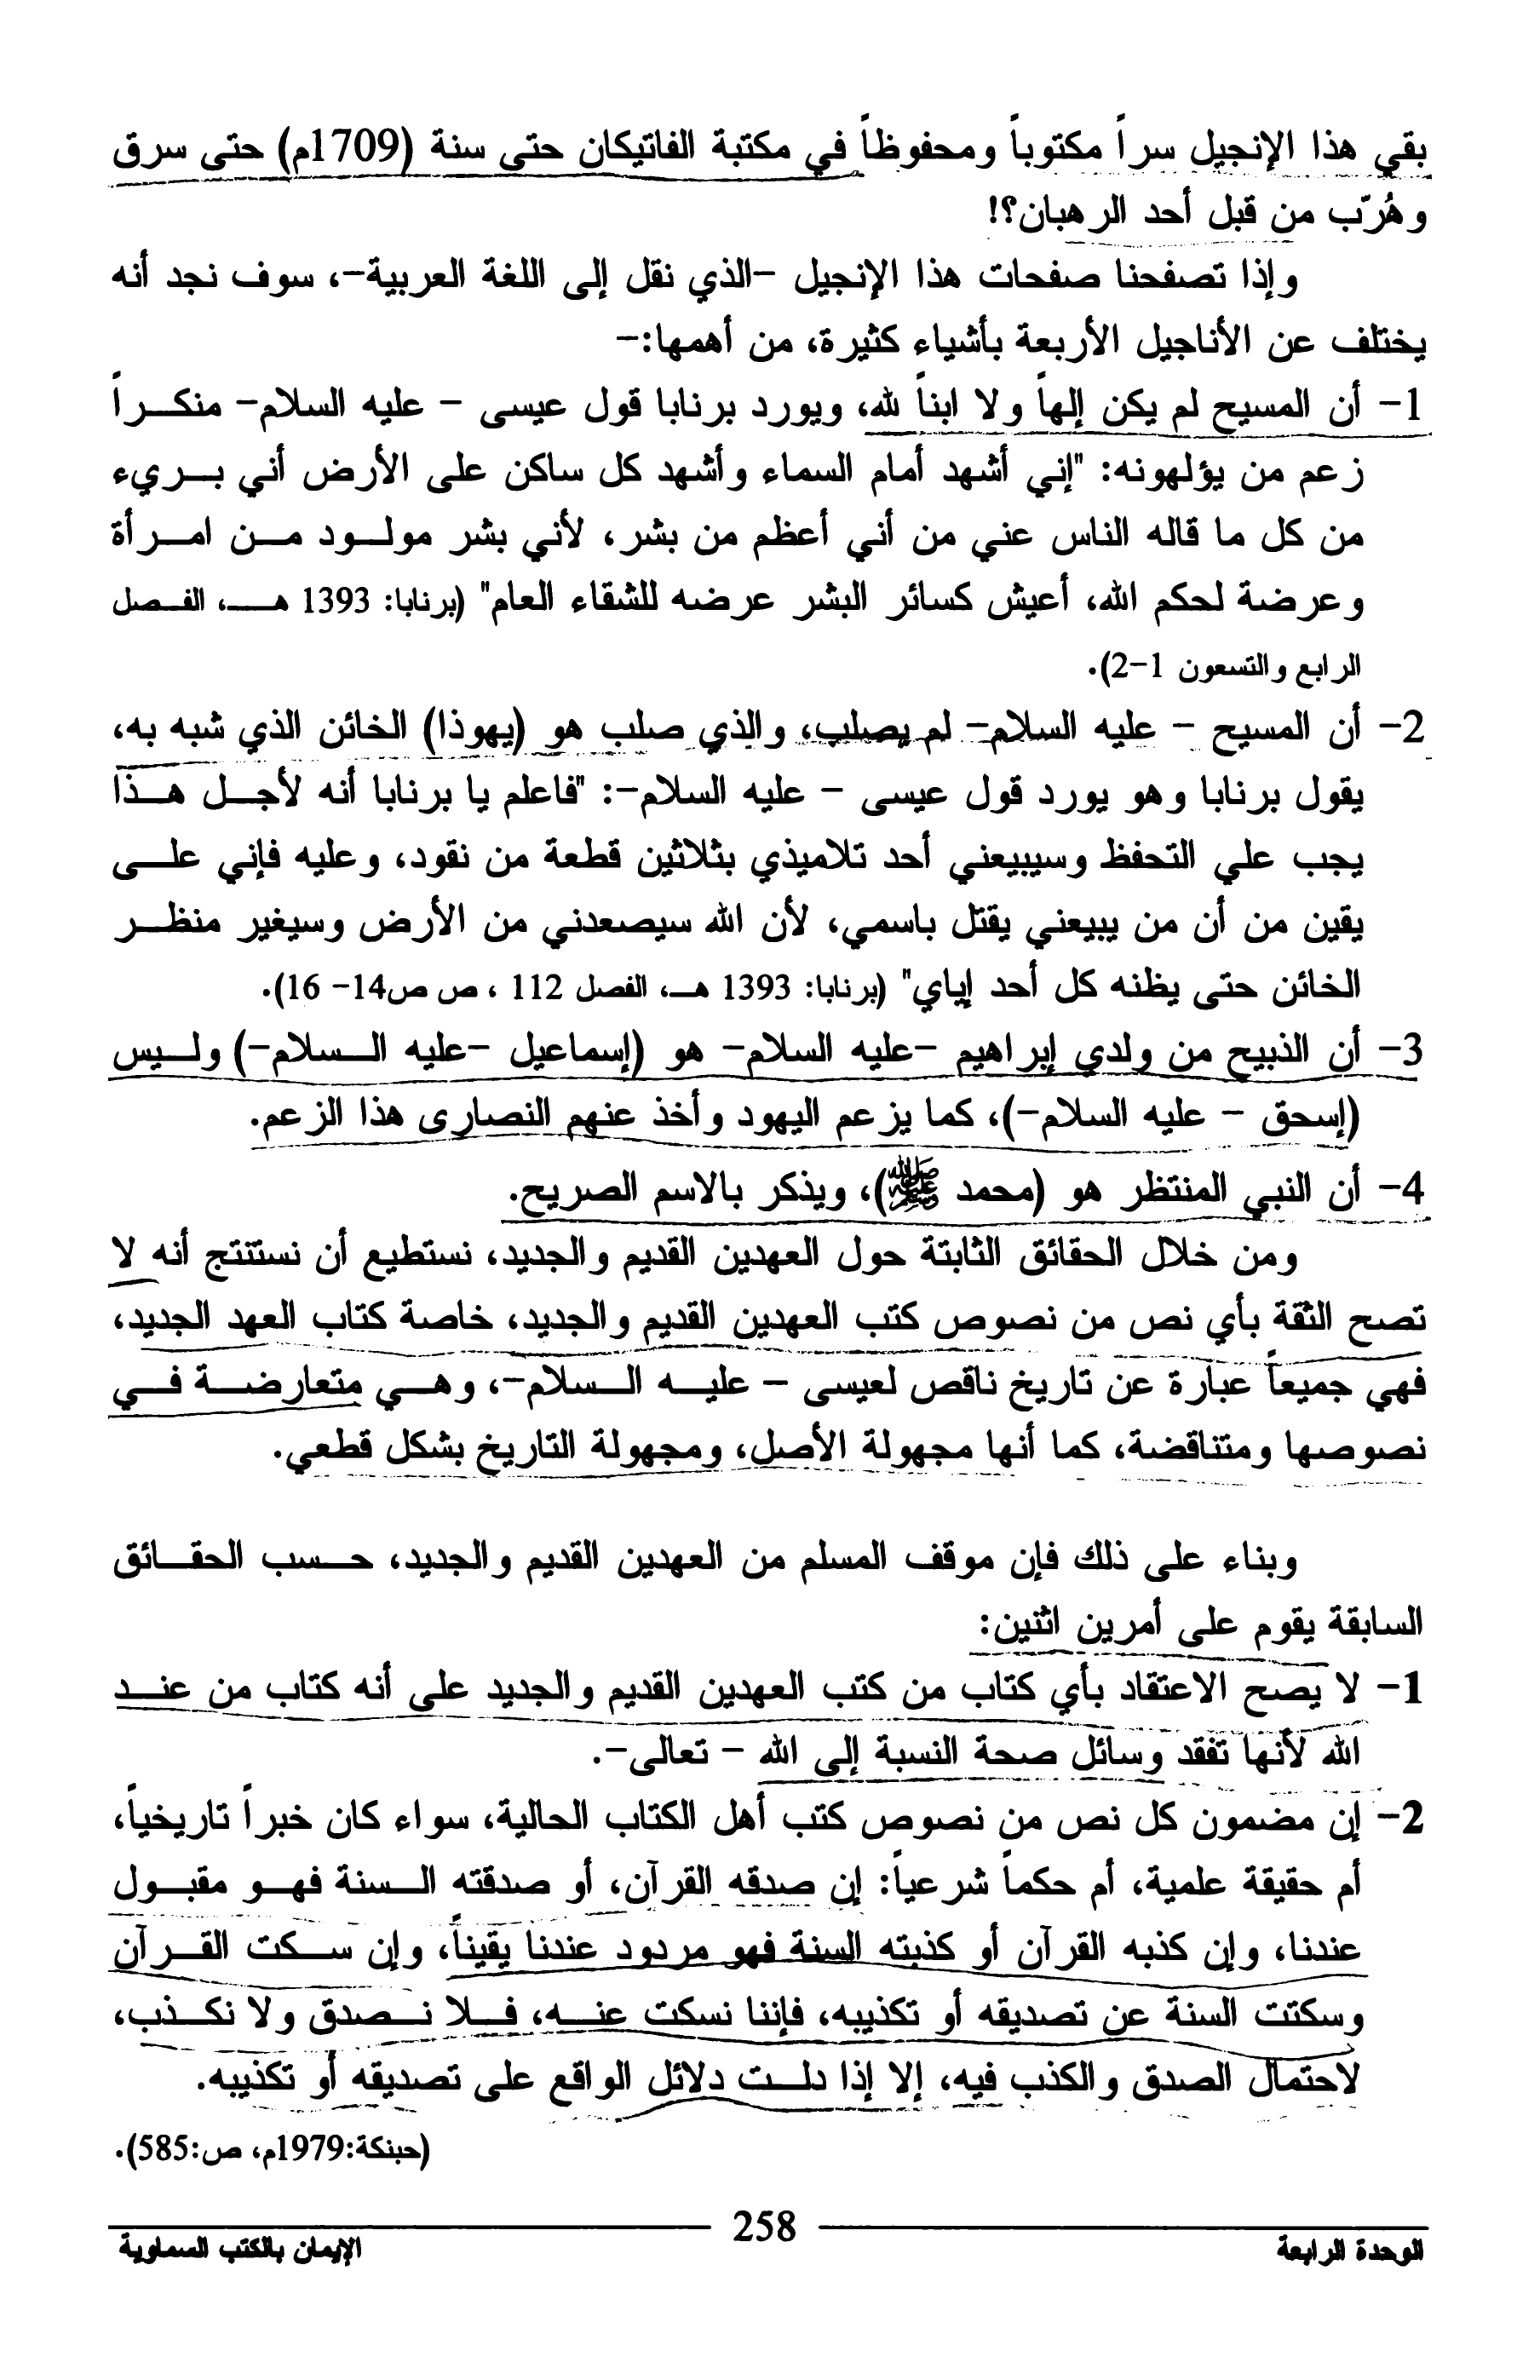 بقي هذا الإنجيل سراً مكتوباً ومحفوظاً في مكتبة الفاتيكان حتى سنة (1709م) حتى سرق
وهُرّب من قبل أحد الرهبان؟!
وإذا تصفحنا صفحات هذا الإنجيل –الذي نقل إلى اللغة العربية–، سوف نجد أنه
يختلف عن الأناجيل الأربعة بأشياء كثيرة، من أهمها:–
1– أن المسيح لم يكن إلهاً ولا ابناً لله، ويورد برنابا قول عيسى – عليه السلام– منكراً
زعم من يؤلهونه: "إني أشهد أمام السماء وأشهد كل ساكن على الأرض أني بريء
من كل ما قاله الناس عني من أني أعظم من بشر، لأني بشر مولود من امرأة
وعرضة لحكم الله، أعيش كسائر البشر عرضه للشقاء العام" (برنابا: 1393 هـ، الفصل
الرابع والتسعون 1–2).
2– أن المسيح – عليه السلام– لم يصلب، والذي صلب هو (يهوذا) الخائن الذي شبه به،
يقول برنابا وهو يورد قول عيسى – عليه السلام–: "فاعلم يا برنابا أنه لأجل هذا
يجب علي التحفظ وسيبيعني أحد تلاميذي بثلاثين قطعة من نقود، وعليه فإني على
يقين من أن من يبيعني يقتل باسمي، لأن الله سيصعدني من الأرض وسيغير منظر
الخائن حتى يظنه كل أحد إياي" (برنابا: 1393 هـ، الفصل 112 ، ص ص14– 16).
3– أن الذبيح من ولدي إبراهيم –عليه السلام– هو (إسماعيل –عليه السلام–) وليس
(إسحق – عليه السلام–)، كما يزعم اليهود وأخذ عنهم النصارى هذا الزعم.
4– أن النبي المنتظر هو (محمد ﷺ)، ويذكر بالاسم الصريح.
ومن خلال الحقائق الثابتة حول العهدين القديم والجديد، نستطيع أن نستنتج أنه لا
تصح الثقة بأي نص من نصوص كتب العهدين القديم والجديد، خاصة كتاب العهد الجديد،
فهي جميعاً عبارة عن تاريخ ناقص لعيسى – عليه السلام–، وهي متعارضة في
نصوصها ومتناقضة، كما أنها مجهولة الأصل، ومجهولة التاريخ بشكل قطعي.
وبناء على ذلك فإن موقف المسلم من العهدين القديم والجديد، حسب الحقائق
السابقة يقوم على أمرين اثنين:
1– لا يصح الاعتقاد بأي كتاب من كتب العهدين القديم والجديد على أنه كتاب من عند
الله لأنها تفقد وسائل صحة النسبة إلى الله – تعالى–.
2– إن مضمون كل نص من نصوص كتب أهل الكتاب الحالية، سواء كان خبراً تاريخياً،
أم حقيقة علمية، أم حكماً شرعياً: إن صدقه القرآن، أو صدقته السنة فهو مقبول
عندنا، وإن كذبه القرآن أو كذبته السنة فهو مردود عندنا يقيناً، وإن سكت القرآن
وسكتت السنة عن تصديقه أو تكذيبه، فإننا نسكت عنه، فلا نصدق ولا نكذب،
لاحتمال الصدق والكذب فيه، إلا إذا دلت دلائل الواقع على تصديقه أو تكذيبه.
(حبنكة:1979م، ص:585).
258
الوحدة الرابعة
الإيمان بالكتب السماوية